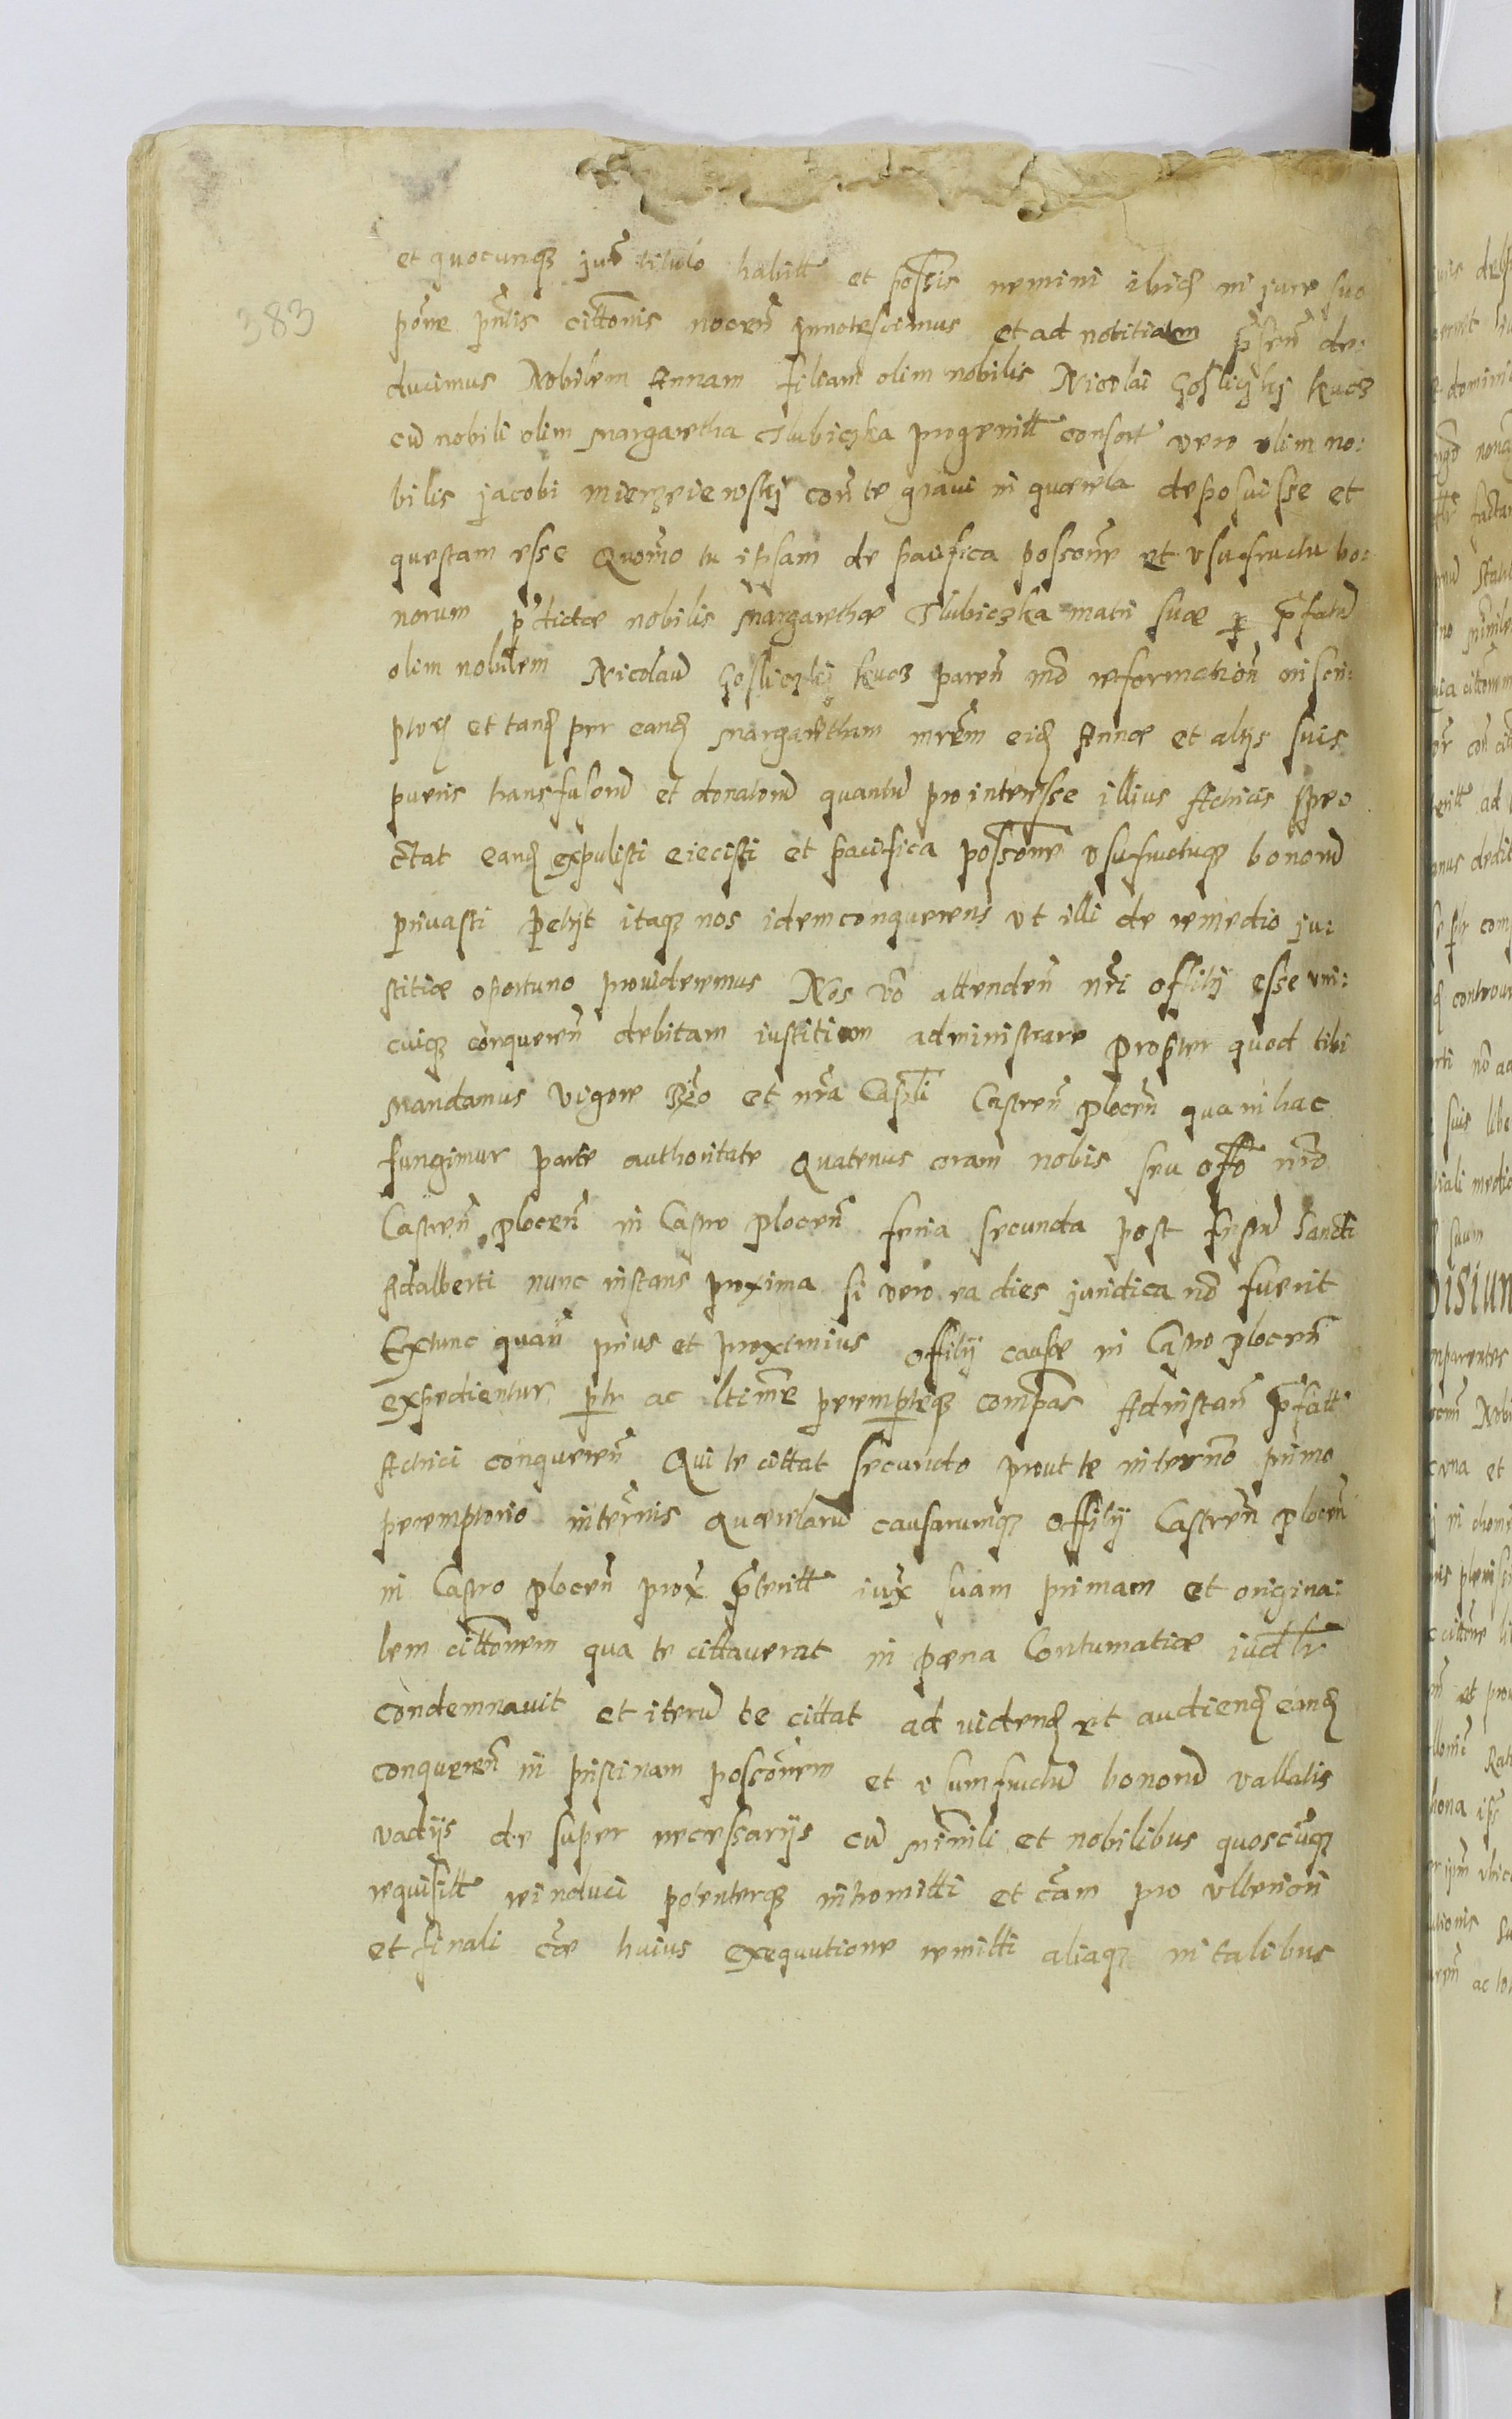 383
et quocunqz jurē titulo habitt et possis nemini ibid in jure suo
põne pntis cittonis nocen innotescimus et ad notitiam psen de:
ducimus Nobilem Annam filiam olim nobilis Nicolai Gosliczkj kucz
cū nobili olim Margaretha Slubiczka progenitt consort vero olim no:
bilis jacobi mierzeiewskj con te gravi in quærela deposuisse et
questam esse Quomo tu ipsam de pacifica possone et usufructu bo:
norum pdictæ nobilis Margarethæ Slubiczka matri suæ p pfatū
olim nobilem Nicolaū Gosliczkj kucz paren mō reformation inscri:
ptorz et tand per eand Margaretham mrem eid Annæ et alijs suis
pueris transfusorū et donatorū quantū pro interesse illius Actricis spe
ctat eand expulisti eiecisti et pacifica possone usufructuqz bonorū
privasti petijt itaqz nos idem conquerens ut illi de remedio ju:
stitiæ oportuno provideremus Nos vō attenden nri offitij esse uni:
cuiqz conqueren debitam iustitiam administrare propter quod tibi
Mandamus vigore et nra Captli Castren plocen qua in hac
fungimur parte authoritate Quatenus coram nobis seu offō nrō
Castren plocen in Castro plocen feria secunda post festū Sancti
Adalberti nunc instans proxima si vero ea dies juridica nō fuerit
Extunc quan prius et proximius offitij causæ in Castro plocen
expedientur ptr ac ltime peremptieqz compas Ad instan pfatt
Actrici conqueren Qui te cittat secundo prout te in termno primo
peremptorio in termnis quærelarū causarumqz offitij Castren plocen
in Castro plocen prox pteritt iux suam primam et origina:
lem cittonem qua te cittaverat in pœna Contumatiæ iudltr
condemnavit et iterū te cittat ad vidend et audiend eand
conqueren in pristinam possonem et usumfructū bonorū vallatis
vadijs de super necessarijs cū Ministrili et nobilibus quoscunqz
requisitt reinduci potenterqz intromitti et cām pro ulteriori
et finali cæ huius exequutione remitti aliaqz in talibus